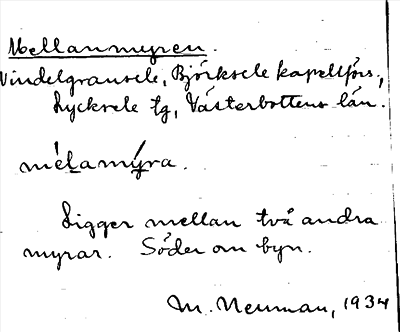 Mellanmyren.
Vindelgransele, Björksele kapellförs.,
Lycksele tg, Västerbottens län.
mélamýra.
Ligger mellan två andra
myrar. Söder om byn.
M. Neuman, 1934